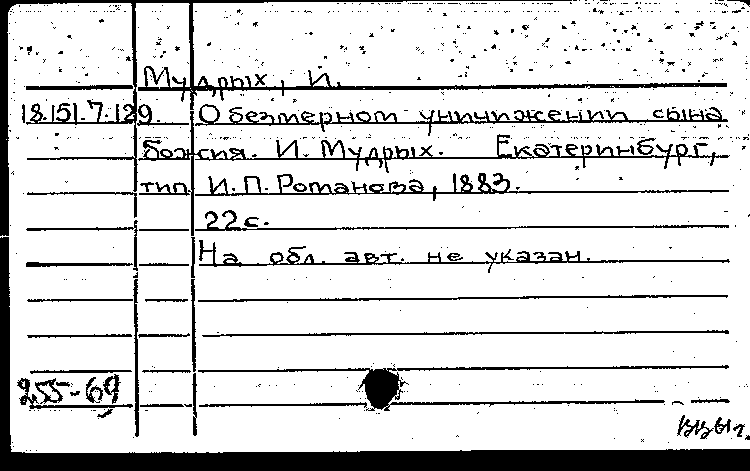 Мудрых, И.
18.151.7.129. О безмерном уничижении сына
божия. И. Мудрых. Екатеринбург,
тип. И.П. Романова, 1883.
22с.
На обл. авт. не указан.
255-69